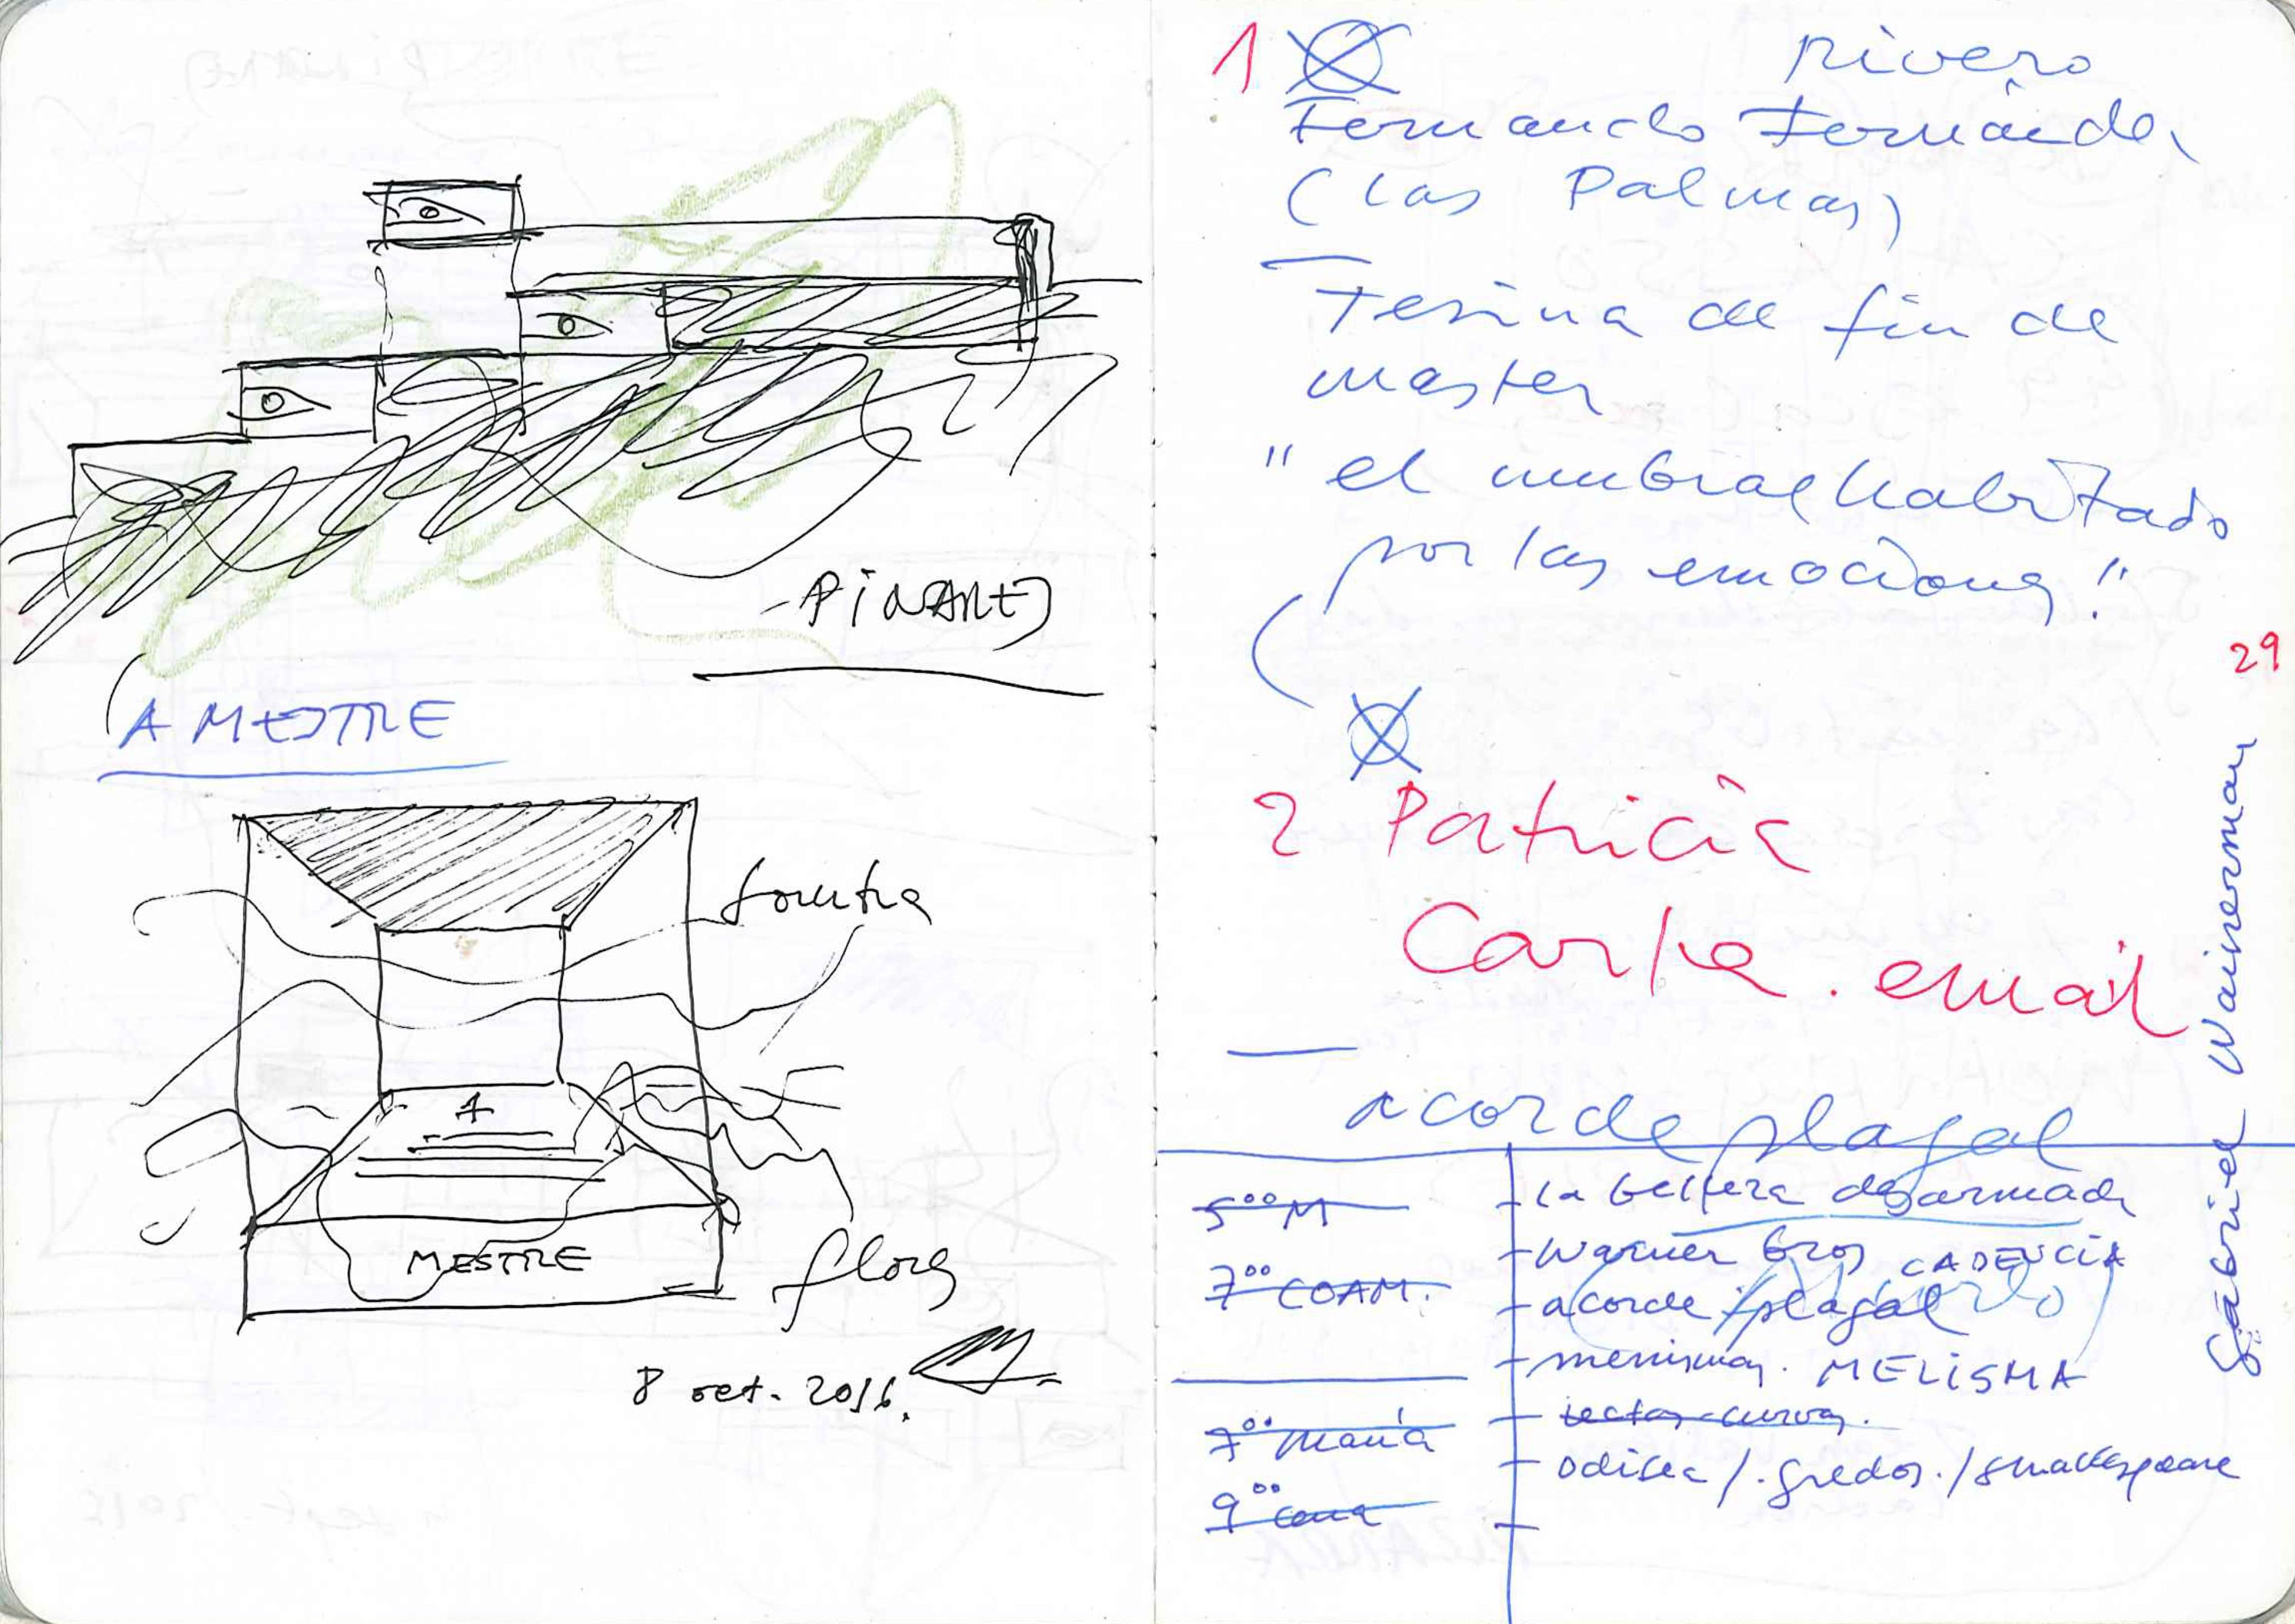 PINARES
A MESTRE
1
MESTRE
flores
8 oct. 2016.
1
rivero
Fernando Fernández
(Las Palmas)
Tesina de fin de
master
" el umbral habitado
por las emociones "
29
2 Patricia
Carpe . email
Gabriel Wainerman
acorde plagal
5⁰⁰ M
7⁰⁰ COAM.
7⁰⁰ María
9⁰⁰ cena
- la belleza desarmada
- Warner Bros CADENCIA
- acorde / plagal
- MELISMA
- rectas curvas.
- odisea / . gredos . / shakespeare